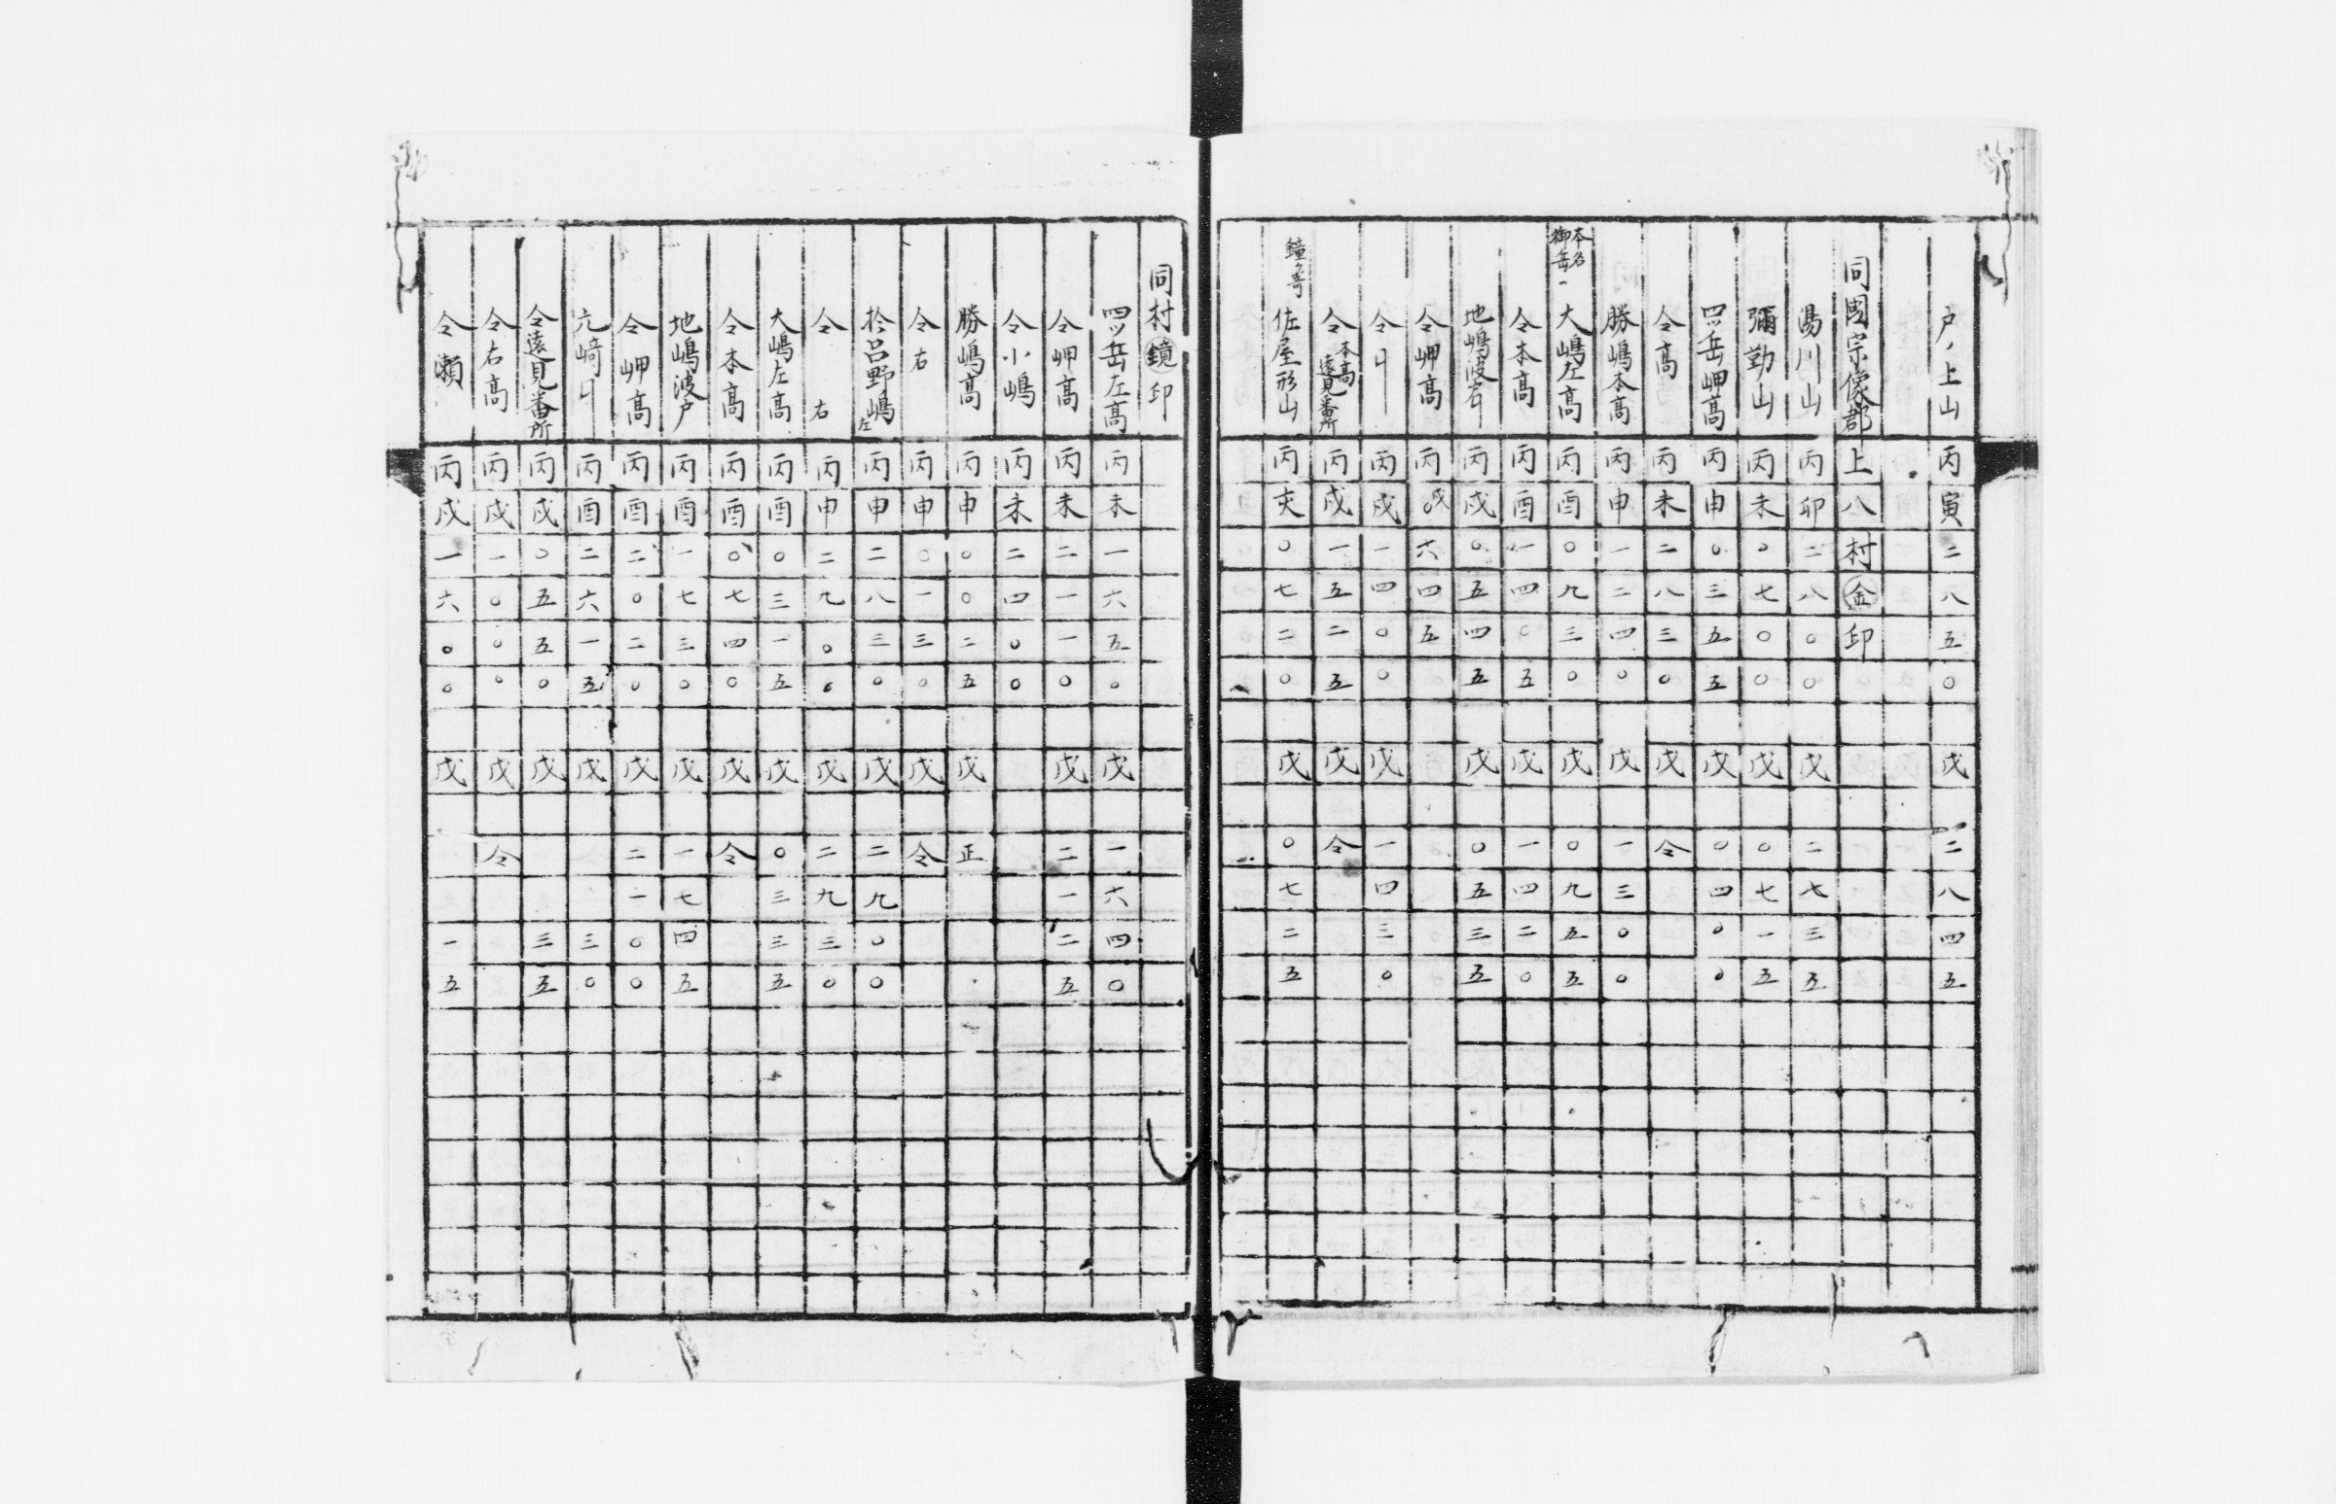 戸ノ上山 丙寅二八五〇 戊 二八四五
同國宗像郡上八村㊎印
湯川山 丙卯二八〇〇 戊 二七三五
彌勒山 丙未〇七〇〇 戊 〇七一五
四ツ岳岬髙 丙申〇三五五 戊 〇四〇〇
仝髙 丙未二八三〇 戊 仝
勝嶋本髙 丙申一二四〇 戊 一三〇〇
本名御岳 大嶋左髙 丙酉〇九三〇 戊 〇九五五
仝本髙 丙酉一四〇五 戊 一四二〇
地嶋波右 丙戌〇五四五 戊 〇五三五
仝岬髙 丙戌六四五
仝 丙戌一四〇〇 戊 一四三〇
仝本髙遠見番所 丙戌一五二五 戊 仝
鐘ヶ寄 佐屋形山 丙亥〇七二〇 戊 〇七二五
同村鏡印
四ツ岳左髙 丙未一六五〇 戊 一六四〇
仝岬髙 丙未二一一〇 戊 二一二五
仝小嶋 丙未二四〇〇
勝嶋髙 丙申〇〇二五 戊 正
仝右 丙申〇一三〇 戊 仝
於呂野嶋左 丙申二八三〇 戊 二九〇〇
仝 右 丙申二九〇〇 戊 二九三〇
大嶋左髙 丙酉〇三一五 戊 〇三三五
仝本髙 丙酉〇七四〇 戊 仝
地嶋波戸 丙酉一七三〇 戊 一七四五
仝岬髙 丙酉二〇二〇 戊 二一〇〇
丙酉二六一五 戊 三〇
仝遠見番所 丙戌〇五五〇 戊 三五
仝右髙 丙戌一〇〇〇 戊 仝
仝瀬 丙戌一六〇〇 戊 一五